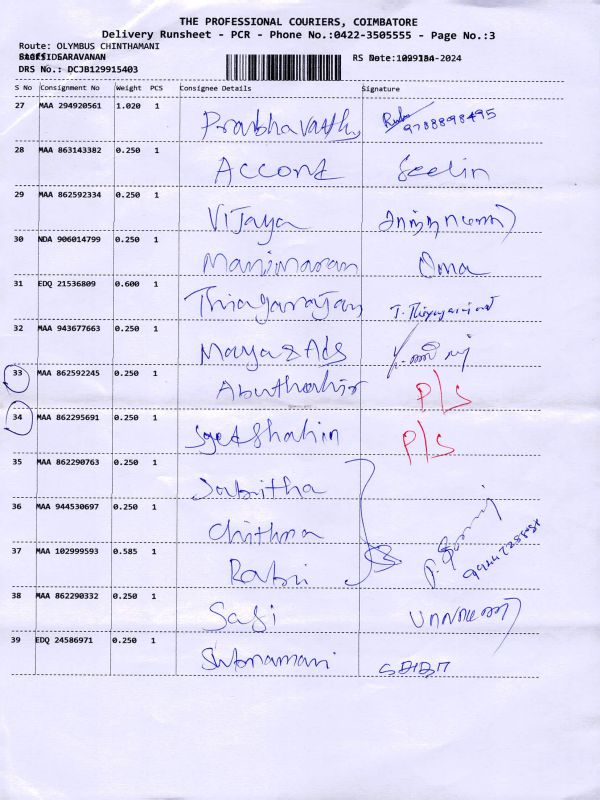 THE PROFESSIONAL COURIERS, COIMBATORE
Delivery Runsheet - PCR - Phone No.:0422-3505555 - Page No.:3
Route: OLYMBUS CHINTHAMANI
SARAVANAN RS Date: -2024
DRS No.: DCJB129915403
S No Consignment No Weight PCS Consignee Details Signature
27 MAA 294920561 1.020 1 Prabhavathy 9788898495
28 MAA 863143382 0.250 1 Accord Seelin
29 MAA 862592334 0.250 1 Vijaya
30 NDA 906014799 0.250 1 Manimaran Oma
31 EDQ 21536809 0.600 1 Thiagarajan
32 MAA 943677663 0.250 1 Maya & Ads
33 MAA 862592245 0.250 1 Abuthahir P/S
34 MAA 862295691 0.250 1 Syed Shahin P/S
35 MAA 862290763 0.250 1 Sabitha
36 MAA 944530697 0.250 1 Chithra
37 MAA 102999593 0.585 1
38 MAA 862290332 0.250 1 Safi
39 EDQ 24586971 0.250 1